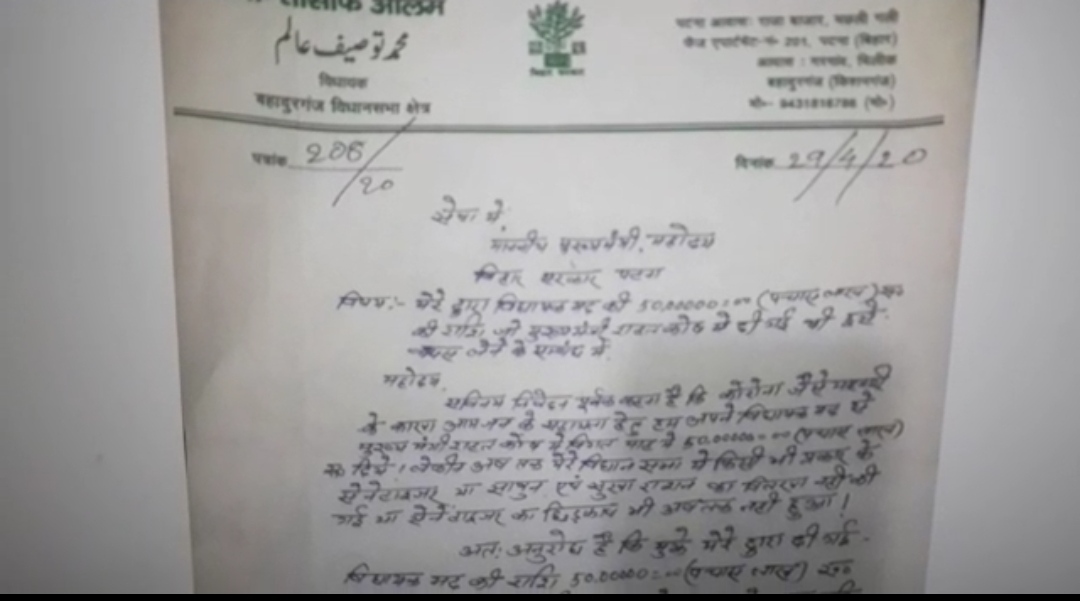 तौसीफ आलम
محمد توصیف عالم
विधायक
बहादुरगंज विधानसभा क्षेत्र
बिहार सरकार
पटना आवास: राजा बाजार, मछली गली
पटना (बिहार)
आवास :
बहादुरगंज (किशनगंज)
मो०- 9431818786 (मो०)
पत्रांक 206/20
दिनांक 29/4/20
सेवा में,
माननीय मुख्यमंत्री, महोदय
बिहार सरकार पटना
विषय:- मेरे द्वारा विधायक मद की 50,00000=00 (पचास लाख) रू०
की राशि जो मुख्यमंत्री राहत कोष में दी गई थी उसे
वापस लेने के संबंध में,
महोदय,
सविनय निवेदन पूर्वक कहना है कि कोरोना जैसे महामारी
के कारण आमजन के सहायता हेतु हम अपने विधायक मद से
मुख्य मंत्री राहत कोष में विगत माह में 50,00000=00 (पचास लाख)
रू० दिये। लेकीन अब तक मेरे विधान सभा में किसी भी प्रकार के
सेनेटाइजर या साबुन एवं सुखा राशन का वितरण नहीं की
गई या सेनेटाइजर का छिड़काव भी अबतक नहीं हुआ!
अत: अनुरोध है कि मुझे मेरे द्वारा दी गई
विधायक मद की राशि 50,00000=00 (पचास लाख) रू०